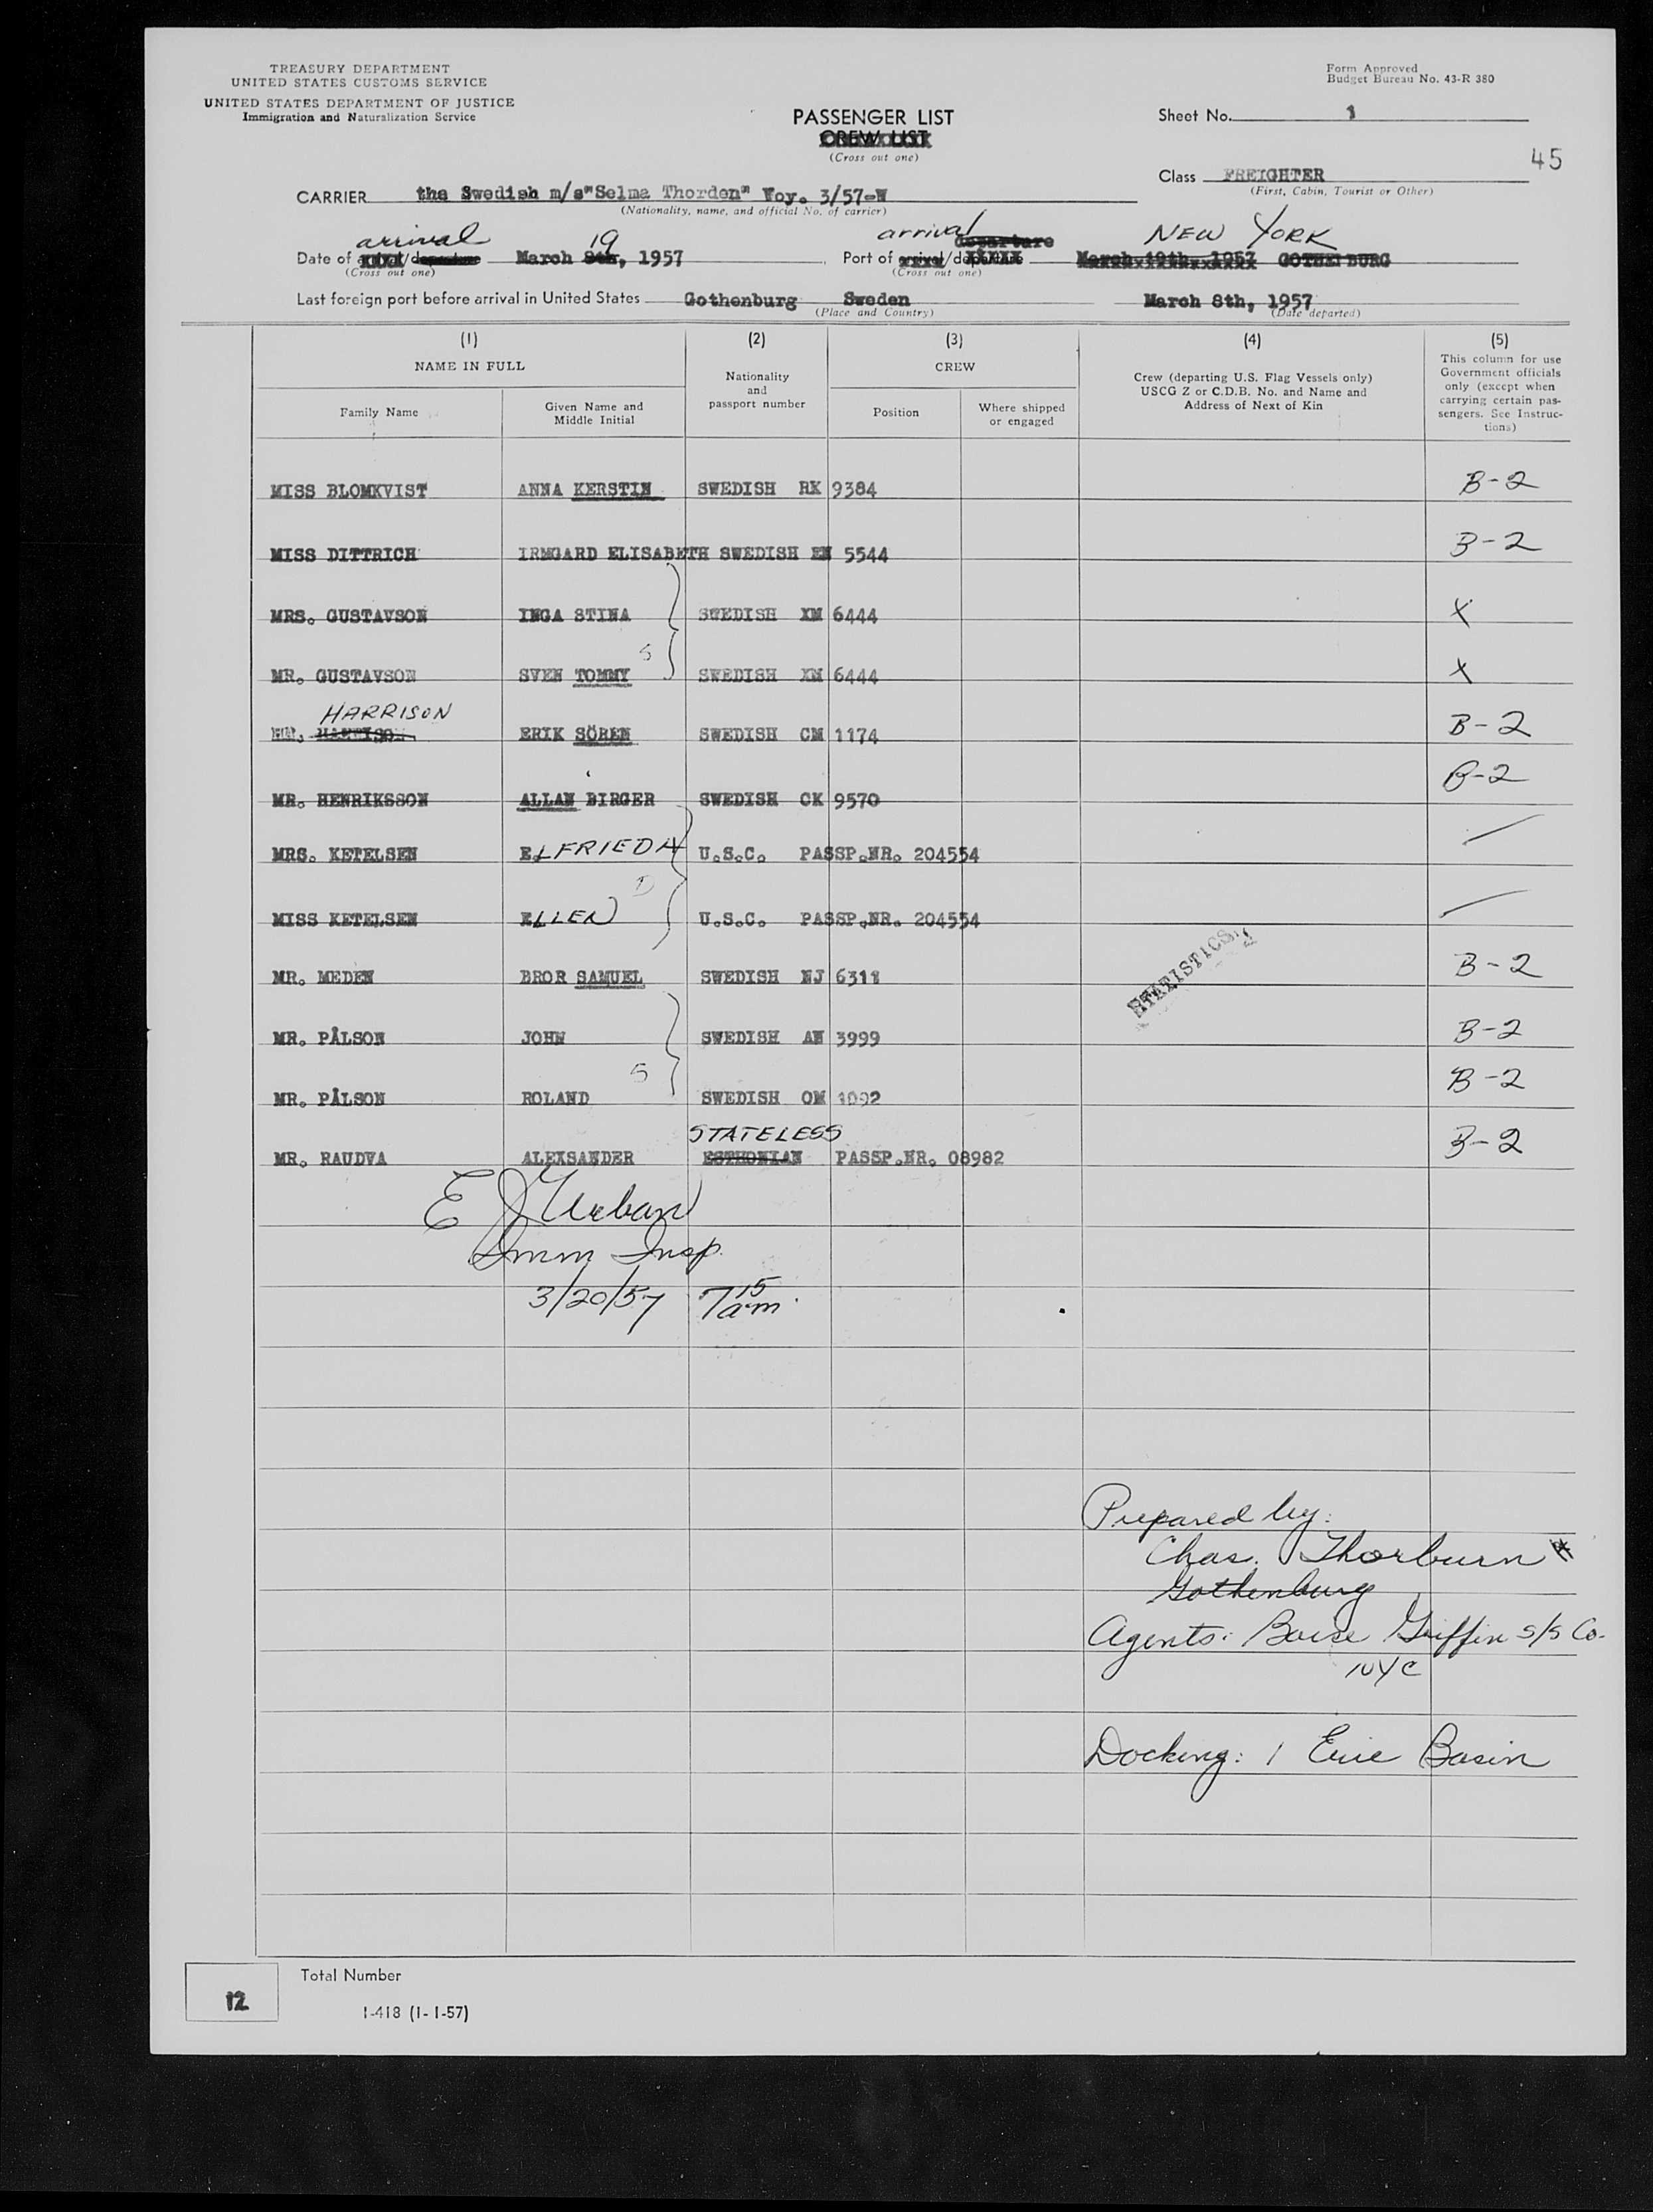 TREASURY DEPARTMENT
UNITED STATES CUSTOMS SERVICE
UNITED STATES DEPARTMENT OF JUSTICE
Immigration and Naturalization Service
Form Approved
Budget Bureau No. 43-R 380
PASSENGER LIST
CREW LIST
(Cross out one)
Sheet No. 1
45
Class FREIGHTER
(First, Cabin, Tourist or Other)
CARRIER the Swedish m/s"Selma Thorden" Voy. 3/57-W
(Nationality, name, and official No. of carrier)
arrival 19 arrival departure NEW YORK
Date of arrival/departure March 8th, 1957 Port of arrival/departure March 19th 1957 GOTHENBURG
(Cross out one) (Cross out one)
Last foreign port before arrival in United States Gothenburg Sweden March 8th, 1957
(Place and Country) (Date departed)
(1) (2) (3) (4) (5)
NAME IN FULL
Family Name
Given Name and Middle Initial
Nationality and passport number
CREW
Position
Where shipped or engaged
Crew (departing U.S. Flag Vessels only)
USCG Z or C.D.B. No. and Name and
Address of Next of Kin
This column for use
Government officials
only (except when
carrying certain pas-
sengers. See Instruc-
tions)
MISS BLOMKVIST ANNA KERSTIN SWEDISH RK 9384 B-2
MISS DITTRICH IRMGARD ELISABETH SWEDISH EN 5544 B-2
MRS. GUSTAVSON INGA STINA SWEDISH XM 6444 X
S
MR. GUSTAVSON SVEN TOMMY SWEDISH XM 6444 X
HARRISON
MR. ERIK SÖREN SWEDISH CM 1174 B-2
MR. HENRIKSSON ALLAN BIRGER SWEDISH CK 9570 B-2
MRS. KETELSEN ELFRIEDA U.S.C. PASSP.NR. 204554
D
MISS KETELSEN ELLEN U.S.C. PASSP.NR. 204554
STATISTICS
MR. MEDEN BROR SAMUEL SWEDISH NJ 6311 B-2
MR. PÅLSON JOHN SWEDISH AN 3999 B-2
S
MR. PÅLSON ROLAND SWEDISH OM 1092 B-2
STATELESS
MR. RAUDVA ALEKSANDER ESTHONIAN PASSP.NR. 08982 B-2
E J Urban
Imm Insp.
3/20/57 7 15 am.
Prepared by:
Chas. Thorburn
Gothenburg
Agents: Boise Griffin S/S Co.
NYC
Docking: 1 Erie Basin
12
Total Number
I-418 (1-1-57)